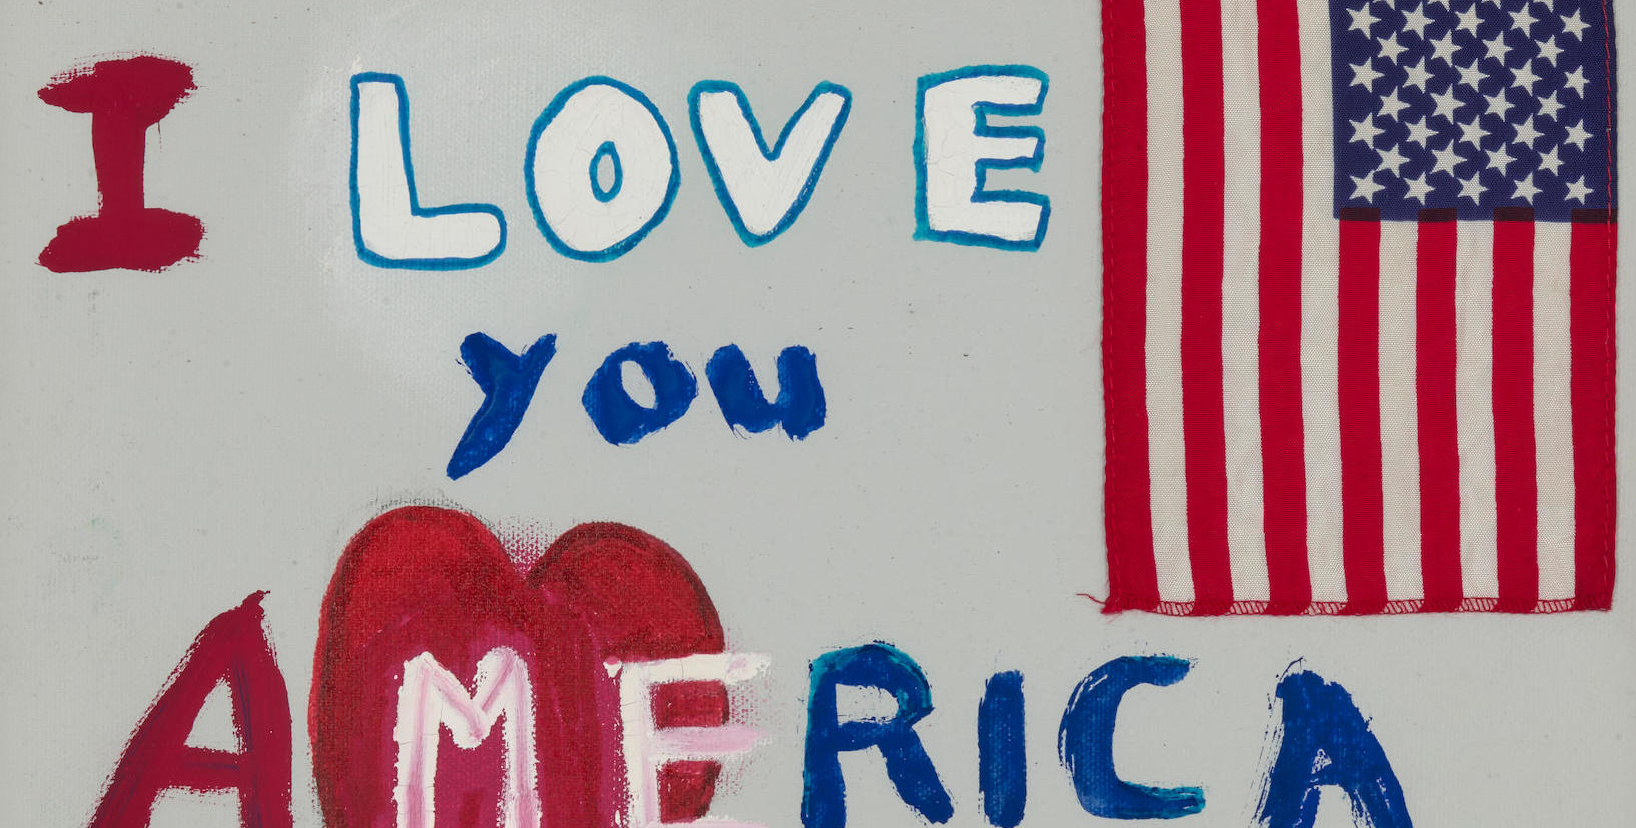 I LOVE
you
AMERICA